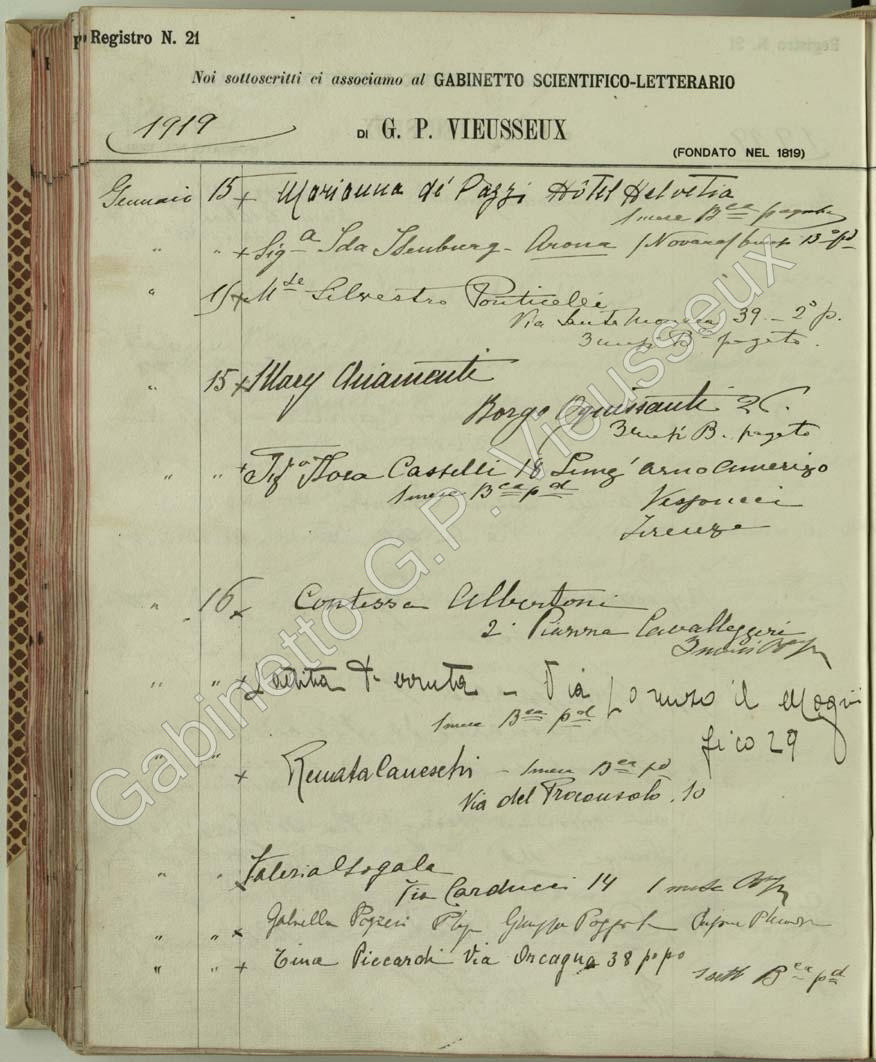 Registro N. 21
Noi sottoscritti ci associamo al GABINETTO SCIENTIFICO-LETTERARIO
1919
DI G. P. VIEUSSEUX
(FONDATO NEL 1819)
Gennaio 15 + Marianna de' Pazzi Hôtel Helvetia
1 mese Bca
" " + Sigª Ida Isenburg - Arona (Novara)
" 15 + Silvestro Ponticelli
Via Santa Monaca 39 - 2° p.
3 mesi B. pagato.
" 15 + Mary Chiamenti
Borgo Ognissanti
3 mesi B. pagato
" " + Flora Casselli 18 Lung' Arno Amerigo
1 mese Bca pd Vespucci
Firenze
" 16 x Contessa Albertoni
2 Piazza Cavalleggeri
" " + - Via Lorenzo il Magni
1 mese Bca pd
fico 29
" " + Renata Caneschi - 1 mese Bca pd
Via del Proconsolo. 10
" " x Valeria
Via Carducci 14 1 mese
" " x Gabriella
" " + Tina Piccardi Via Orcagna 38 pº pº
1 sett Bca pd
Gabinetto G.P. Vieusseux